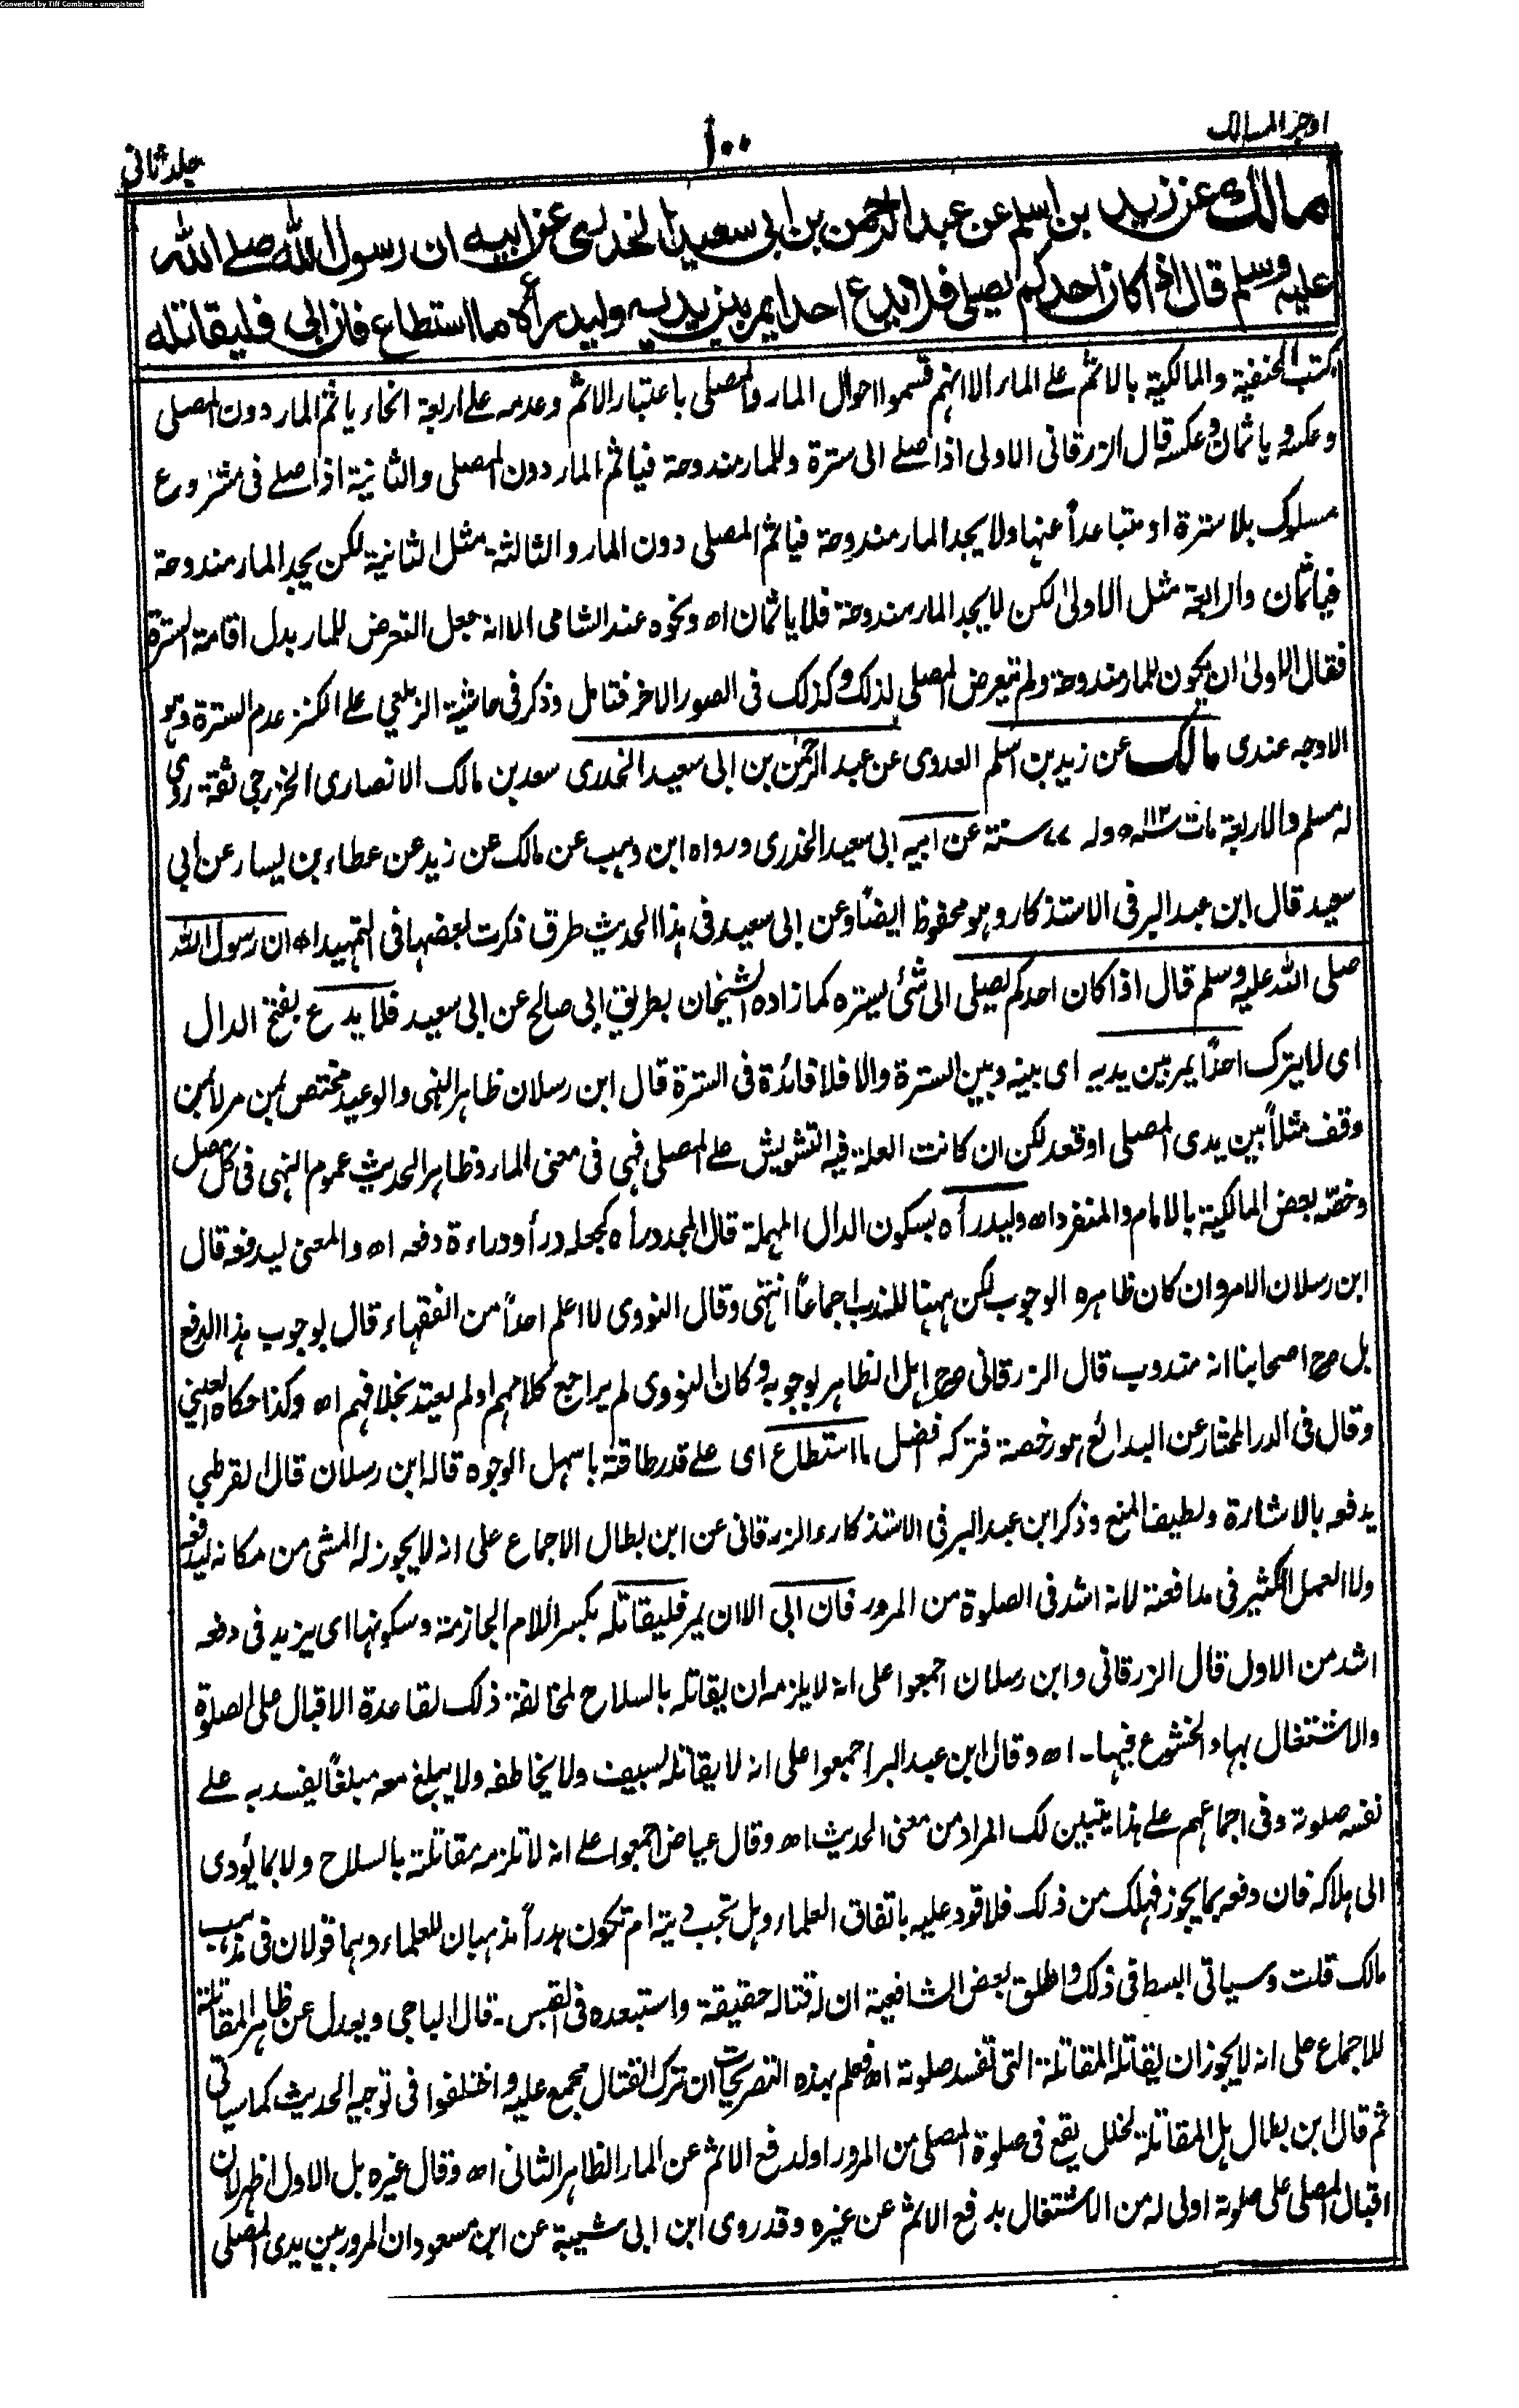 Converted by Tiff Combine - unregistered
اوجز المسالک
١٠٠
جلد ثانی
مالك عن زيد بن اسلم عن عبد الرحمن بن ابى سعيد الخدرى عن ابيه ان رسول الله صلے الله
عليه وسلم قال اذا كان احدكم يصلى فلا يدع احدا يمر بين يديه وليدرأه ما استطاع فان ابى فليقاتله
كتب الحنفية والمالكية بالاثم على المار الا انهم قسموا احوال المار والمصلى باعتبار الاثم وعدمه على اربعة انحاء ياثم المار دون المصلى
وعكسه وياثمان وعكسه قال الزرقانى الاولى اذا صلے الى سترة وللمار مندوحة فيأثم المار دون المصلى والثانية اذا صلے فى مشروع
مسلوك بلا سترة او متباعداً عنها ولا يجد المار مندوحة فياثم المصلى دون المار والثالثة مثل الثانية لكن يجد المار مندوحة
فياثمان والرابعة مثل الاولى لكن لا يجد المار مندوحة فلا ياثمان اه ونحوه عند الشامى الا انه جعل التعرض للمار بدل اقامة السترة
فقال الاولى ان يكون للمار مندوحة ولم يتعرض المصلى لذلك وكذلك فى الصور الاخر فتامل وذكر فى حاشية الزيلعي على الكنز عدم السترة وهو
الاوجه عندى مالك عن زيد بن اسلم العدوى عن عبد الرحمٰن بن ابى سعيد الخدرى سعد بن مالك الانصارى الخزرجى ثقة روى
له مسلم والاربعة مات سنة ١١٢ه وله ٧٧ سنة عن ابيه ابى سعيد الخدرى ورواه ابن وهب عن مالك عن زيد عن عطاء بن يسار عن ابى
سعيد قال ابن عبد البر فى الاستذكار وهو محفوظ ايضاً وعن ابى سعيد فى هذا الحديث طرق ذكرت بعضها فى التمهيد اه ان رسول الله
صلى الله عليه وسلم قال اذا كان احدكم يصلى الى شئ يستره كما زاده الشيخان بطريق ابى صالح عن ابى سعيد فلا يدع بفتح الدال
اى لا يترك احداً يمر بين يديه اى بينه وبين السترة والا فلا فائدة فى السترة قال ابن رسلان ظاهر النهى والوعيد مختص بمن مر لا بمن
وقف مثلاً بين يدى المصلى او قعد لكن ان كانت العلة فيه التشويش على المصلى فهى فى معنى المار وظاهر الحديث عموم النهى فى كل مصل
وخصّه بعض المالكية بالامام والمنفرد اه وليدرأه بسكون الدال المهملة قال المجد درأه كجعله درأ ودراءة دفعه اه والمعنى ليدفعه قال
ابن رسلان الامر وان كان ظاهره الوجوب لكن ههنا للندب اجماعاً انتهى وقال النووى لا اعلم احداً من الفقهاء قال بوجوب هذا الدفع
بل صرح اصحابنا انه مندوب قال الزرقانى صرح اهل الظاهر بوجوبه وكان النووى لم يراجع كلامهم او لم يعتد بخلافهم اه وكذا حكاه العينى
وقال فى الدر المختار عن البدائع هو رخصة فتركه افضل ما استطاع اى على قدر طاقته باسهل الوجوه قاله ابن رسلان قال القرطبى
يدفعه بالاشارة ولطيف المنع وذكر ابن عبد البر فى الاستذكار والزرقانى عن ابن بطال الاجماع على انه لا يجوز له المشى من مكانه ليدفعه
ولا العمل الكثير فى مدافعته لانه اشد فى الصلوة من المرور فان ابى الا ان يمر فليقاتله بكسر اللام الجازمة وسكونها اى يزيد فى دفعه
اشد من الاول قال الزرقانى وابن رسلان اجمعوا على انه لا يلزمه ان يقاتله بالسلاح لمخالفة ذلك لقاعدة الاقبال على الصلوة
والاشتغال بها والخشوع فيها - اه وقال ابن عبد البر اجمعوا على انه لا يقاتله بسيف ولا يخاطفه ولا يبلغ معه مبلغاً يفسد به على
نفسه صلوته وفى اجماعهم على هذا يتبين لك المراد من معنى الحديث اه وقال عياض اجمعوا على انه لا تلزمه مقاتلته بالسلاح ولا بما يؤدى
الى هلاكه فان دفعه بما يجوز فهلك من ذلك فلا قود عليه باتفاق العلماء وهل تجب دية ام تكون هدراً مذهبان للعلماء وهما قولان فى مذهب
مالك قلت وسياتى البسط فى ذلك واطلق بعض الشافعية ان له قتاله حقيقة واستبعده فى القبس - قال الباجى ويعدل عن ظاهر المقاتلة
للاجماع على انه لا يجوز ان يقاتله المقاتلة التى تفسد صلوته اه فعلم بهذه التصريحات ان ترك القتال مجمع عليه واختلفوا فى توجيه الحديث كما سياتى
ثم قال ابن بطال هل المقاتلة لخلل يقع فى صلوة المصلى من المرور او لدفع الاثم عن المار الظاهر الثانى اه وقال غيره بل الاول اظهر لان
اقبال المصلى على صلوته اولى له من الاشتغال بدفع الاثم عن غيره وقد روى ابن ابى شيبة عن ابن مسعود ان المرور بين يدى المصلى